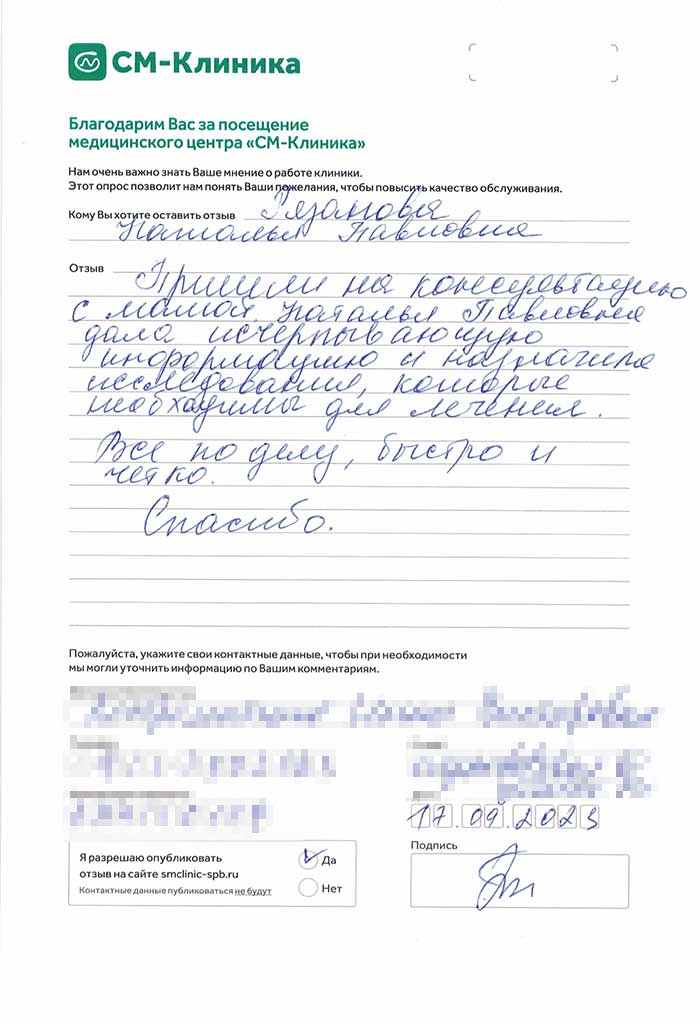 СМ-Клиника
Благодарим Вас за посещение
медицинского центра «СМ-Клиника»
Нам очень важно знать Ваше мнение о работе клиники.
Этот опрос позволит нам понять Ваши пожелания, чтобы повысить качество обслуживания.
Кому Вы хотите оставить отзыв Рязанова
Наталья Павловна
Отзыв Пришли на консультацию
с мамой. Наталья Павловна
дала исчерпывающую
информацию и назначила
исследования, которые
необходимы для лечения.
Все по делу, быстро и
четко.
Спасибо.
Пожалуйста, укажите свои контактные данные, чтобы при необходимости
мы могли уточнить информацию по Вашим комментариям.
17.09.2023
Я разрешаю опубликовать
отзыв на сайте smclinic-spb.ru
Контактные данные публиковаться не будут
Да
Нет
Подпись